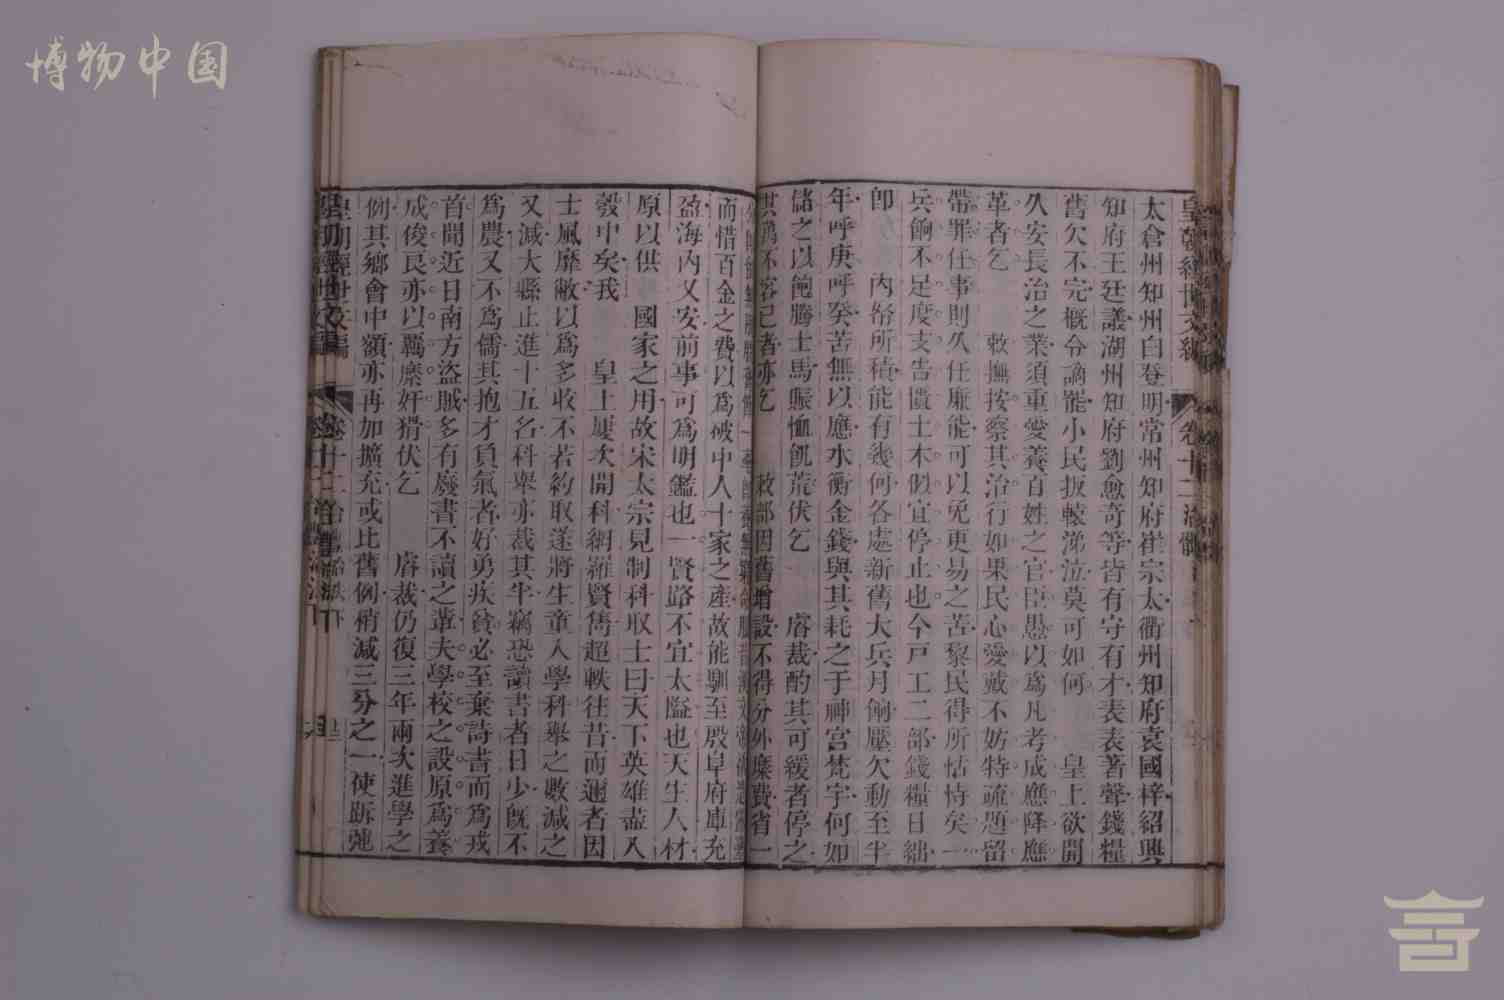 博物中国
太倉州知州白登明常州知府崔宗太衢州知府袁國梓紹興
知府王廷議湖州知府劉愈奇等皆有守有才表表著聲錢糧
舊欠不完概令謫罷小民扳轅涕泣莫可如何 皇上欲開
久安長治之業須重愛養百姓之官臣愚以爲凡考成應降應
革者乞 敕撫按察其治行如果民心愛戴不妨特疏題留
帶罪任事則久任廉能可以免更易之苦黎民得所怙恃矣一
兵餉不足度支告匱土木似宜停止也今戶工二部錢糧日絀
卽 內帑所積能有幾何各處新舊大兵月餉壓欠動至半
年呼庚呼癸苦無以應水衡金錢與其耗之于神宮梵宇何如
儲之以飽騰士馬賑恤飢荒伏乞 睿裁酌其可緩者停之
其萬不容已者亦乞 敕部因舊增設不得分外糜費省一
而惜百金之費以爲破中人十家之產故能馴至殷阜府庫充
盈海內又安前事可爲明鑑也一賢路不宜太隘也天生人材
原以供 國家之用故宋太宗見制科取士曰天下英雄盡入
彀中矣我 皇上屢次開科網羅賢雋超軼往昔而邇者因
士風靡敝以爲多收不若約取遂將生童入學科舉之數減之
又減大縣止進十五名科舉亦裁其半竊恐讀書者日少既不
爲農又不爲儒其抱才負氣者好勇疾貧必至棄詩書而爲戎
首聞近日南方盜賊多有廢書不讀之輩夫學校之設原爲養
成俊民亦以羈縻奸猾伏乞 睿裁仍復三年兩次進學之
例其鄉會中額亦再加擴充或比舊例稍減三分之一使跅弛
皇朝經世文編 卷十二治體